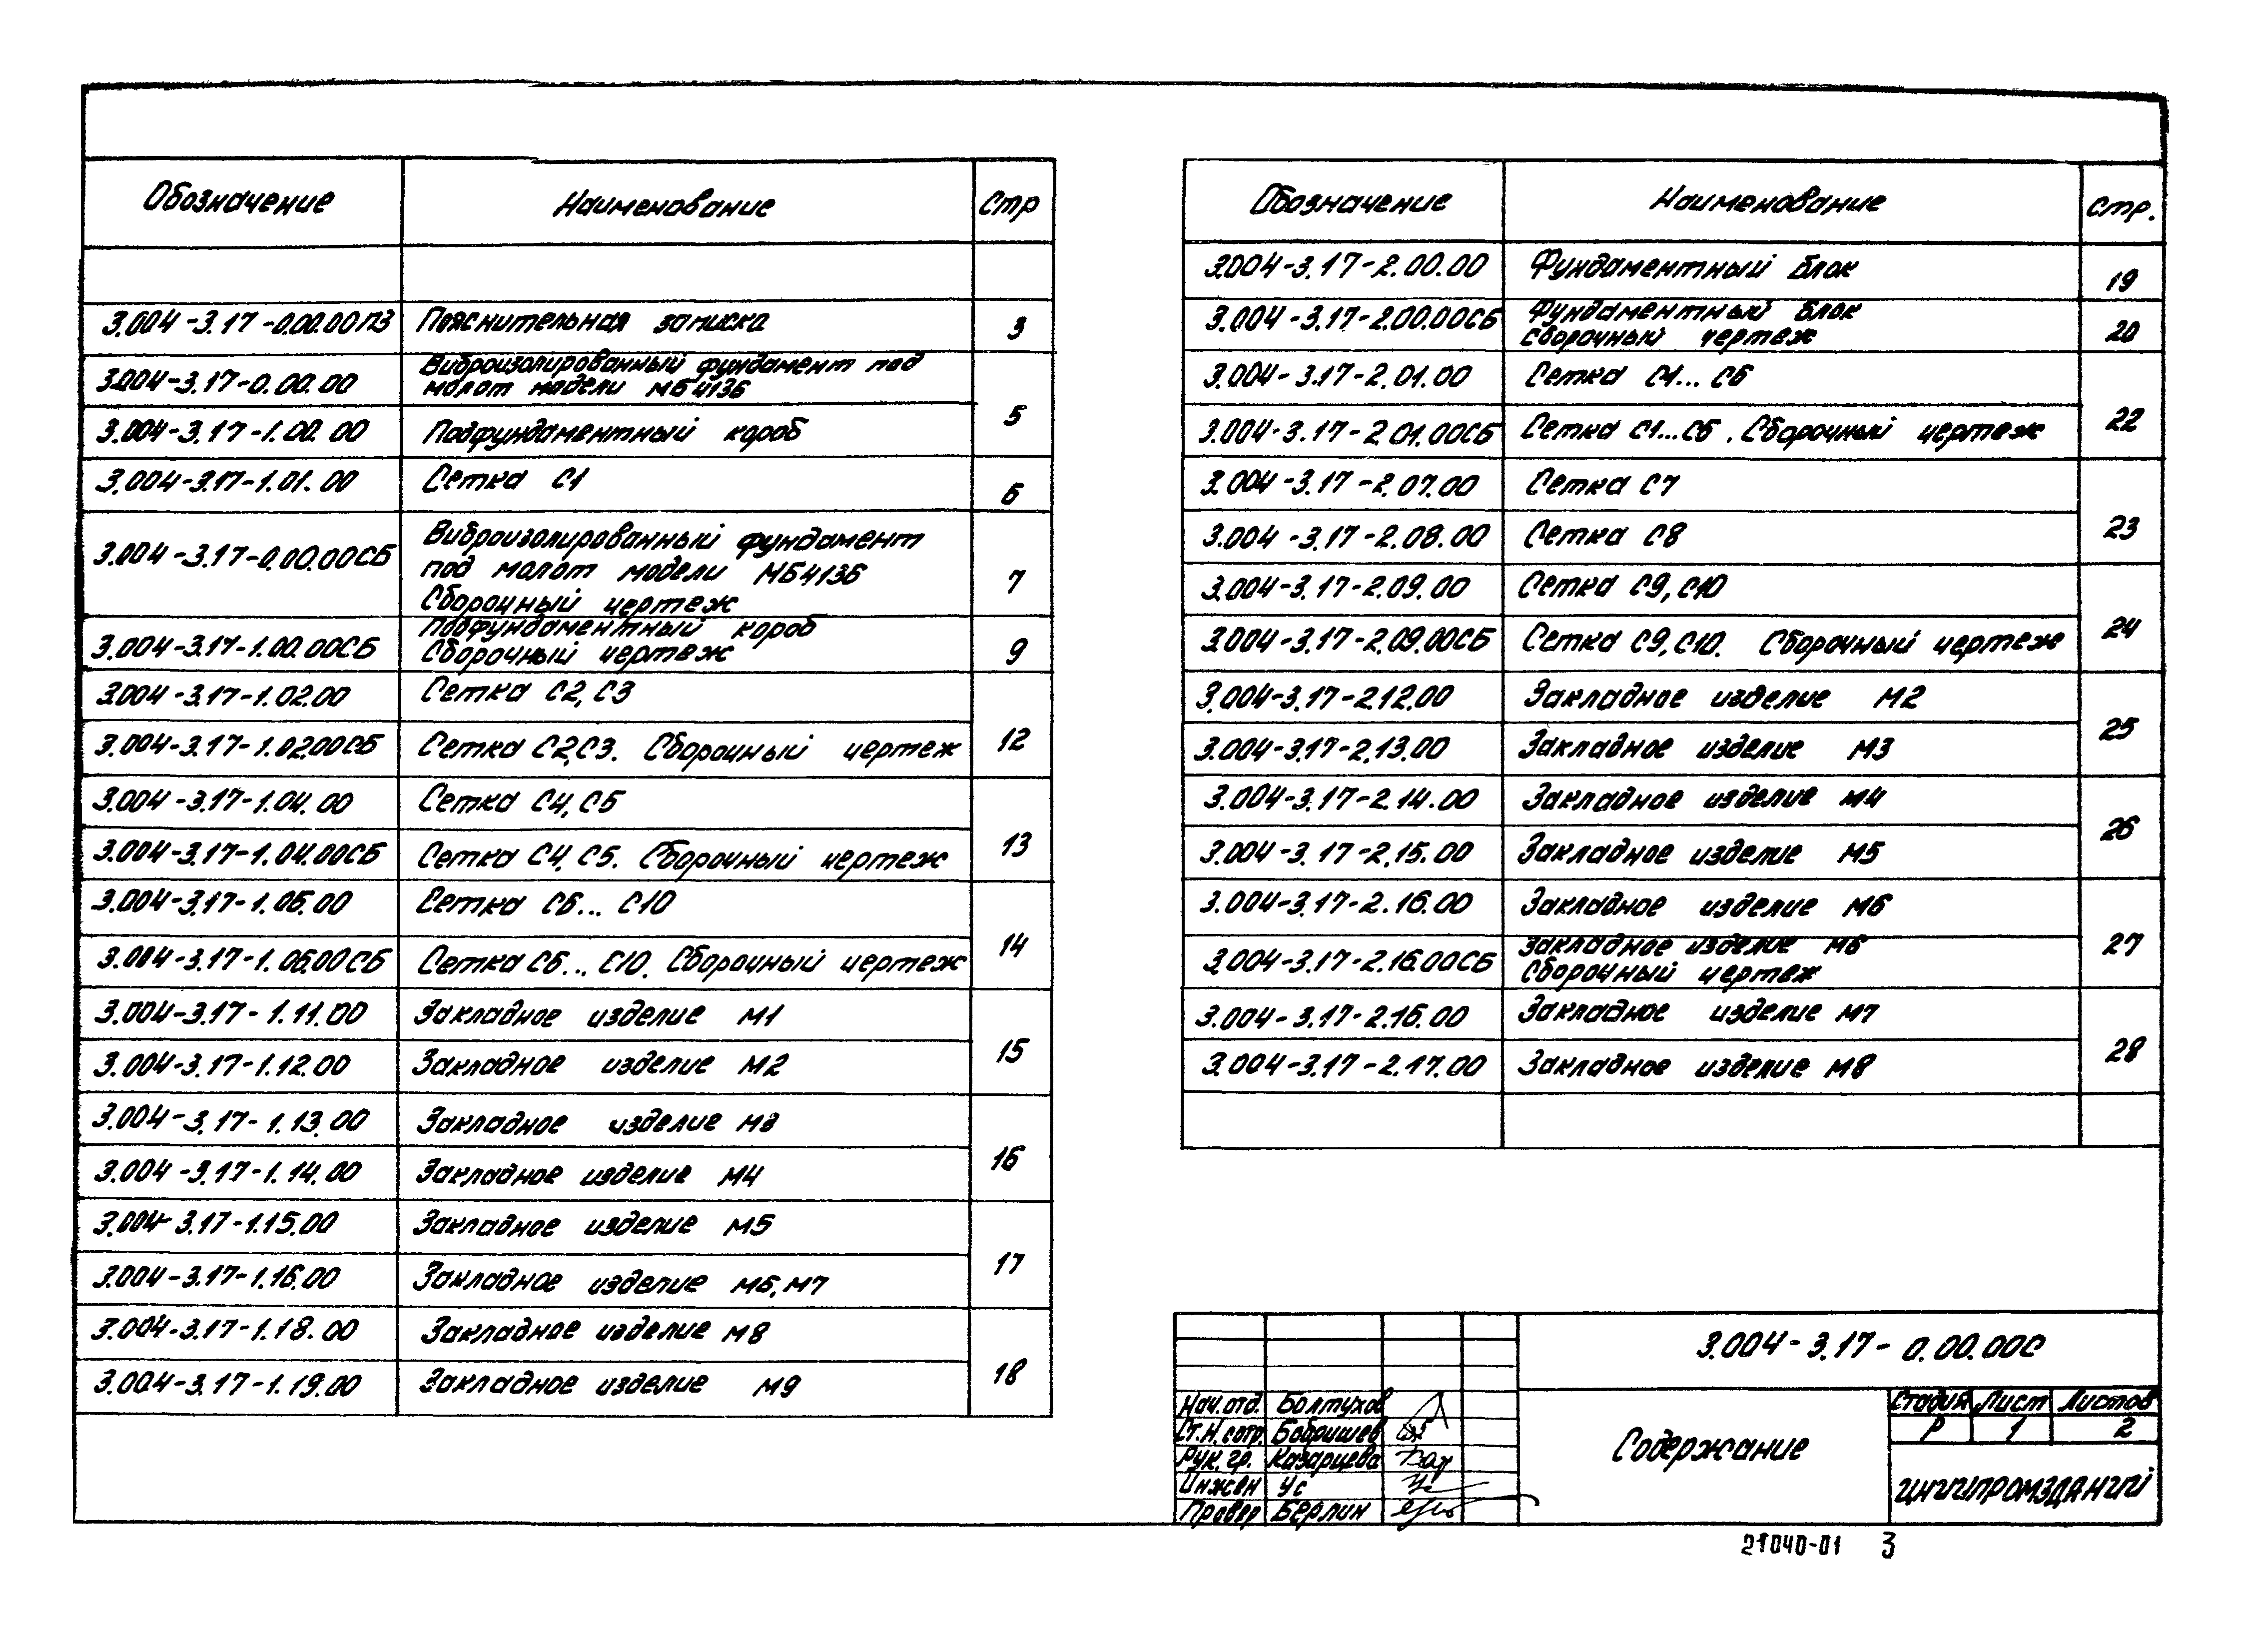 Обозначение Наименование Стр
3.004-3.17-0.00.00ПЗ Пояснительная записка 3
3.004-3.17-0.00.00 Виброизолированный фундамент под
молот модели МБ4136
5
3.004-3.17-1.00.00 Подфундаментный короб
3.004-3.17-1.01.00 Сетка С1 6
3.004-3.17-0.00.00СБ Виброизолированный фундамент
под молот модели МБ4136
Сборочный чертеж
7
3.004-3.17-1.00.00СБ Подфундаментный короб
Сборочный чертеж
9
3.004-3.17-1.02.00 Сетка С2, С3
3.004-3.17-1.02.00СБ Сетка С2, С3. Сборочный чертеж 12
3.004-3.17-1.04.00 Сетка С4, С5
3.004-3.17-1.04.00СБ Сетка С4, С5. Сборочный чертеж 13
3.004-3.17-1.06.00 Сетка С6... С10
3.004-3.17-1.06.00СБ Сетка С6... С10. Сборочный чертеж 14
3.004-3.17-1.11.00 Закладное изделие М1
3.004-3.17-1.12.00 Закладное изделие М2 15
3.004-3.17-1.13.00 Закладное изделие М3
3.004-3.17-1.14.00 Закладное изделие М4 16
3.004-3.17-1.15.00 Закладное изделие М5
3.004-3.17-1.16.00 Закладное изделие М6, М7 17
3.004-3.17-1.18.00 Закладное изделие М8
3.004-3.17-1.19.00 Закладное изделие М9 18
Обозначение Наименование Стр.
3.004-3.17-2.00.00 Фундаментный блок 19
3.004-3.17-2.00.00СБ Фундаментный блок
Сборочный чертеж
20
3.004-3.17-2.01.00 Сетка С1... С6
3.004-3.17-2.01.00СБ Сетка С1...С6. Сборочный чертеж 22
3.004-3.17-2.07.00 Сетка С7
3.004-3.17-2.08.00 Сетка С8 23
3.004-3.17-2.09.00 Сетка С9, С10
3.004-3.17-2.09.00СБ Сетка С9, С10. Сборочный чертеж 24
3.004-3.17-2.12.00 Закладное изделие М2
3.004-3.17-2.13.00 Закладное изделие М3 25
3.004-3.17-2.14.00 Закладное изделие М4
3.004-3.17-2.15.00 Закладное изделие М5 26
3.004-3.17-2.16.00 Закладное изделие М6
3.004-3.17-2.16.00СБ Закладное изделие М6
Сборочный чертеж
27
3.004-3.17-2.16.00 Закладное изделие М7
3.004-3.17-2.17.00 Закладное изделие М8 28
3.004-3.17-0.00.00С
Нач.отд. Болтухов
Ст.н.сотр. Бобришев
Рук.гр. Казарцева
Инжен Ус
Провер Берлин
Содержание
Стадия Лист Листов
Р 1 2
ЦНИИПРОМЗДАНИЙ
21040-01 3